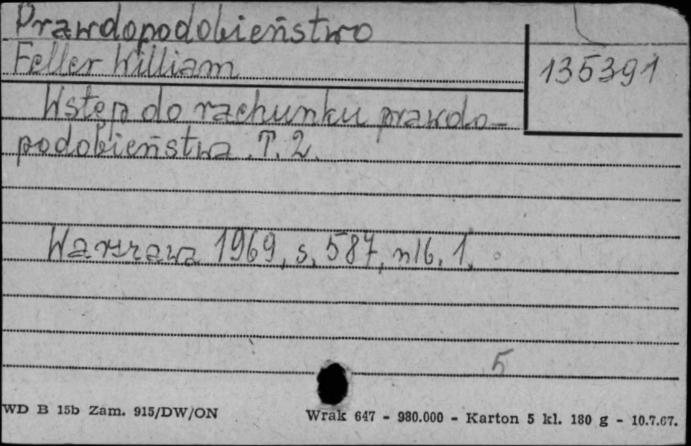 Prawdopodobieństwo
Feller William
135391
Wstęp do rachunku prawdo-
podobieństwa. T. 2.
Warszawa 1969, s. 587, nlb. 1.
5
WD B 15b Zam. 915/DW/ON
Wrak 647 - 980.000 - Karton 5 kl. 180 g - 10.7.67.